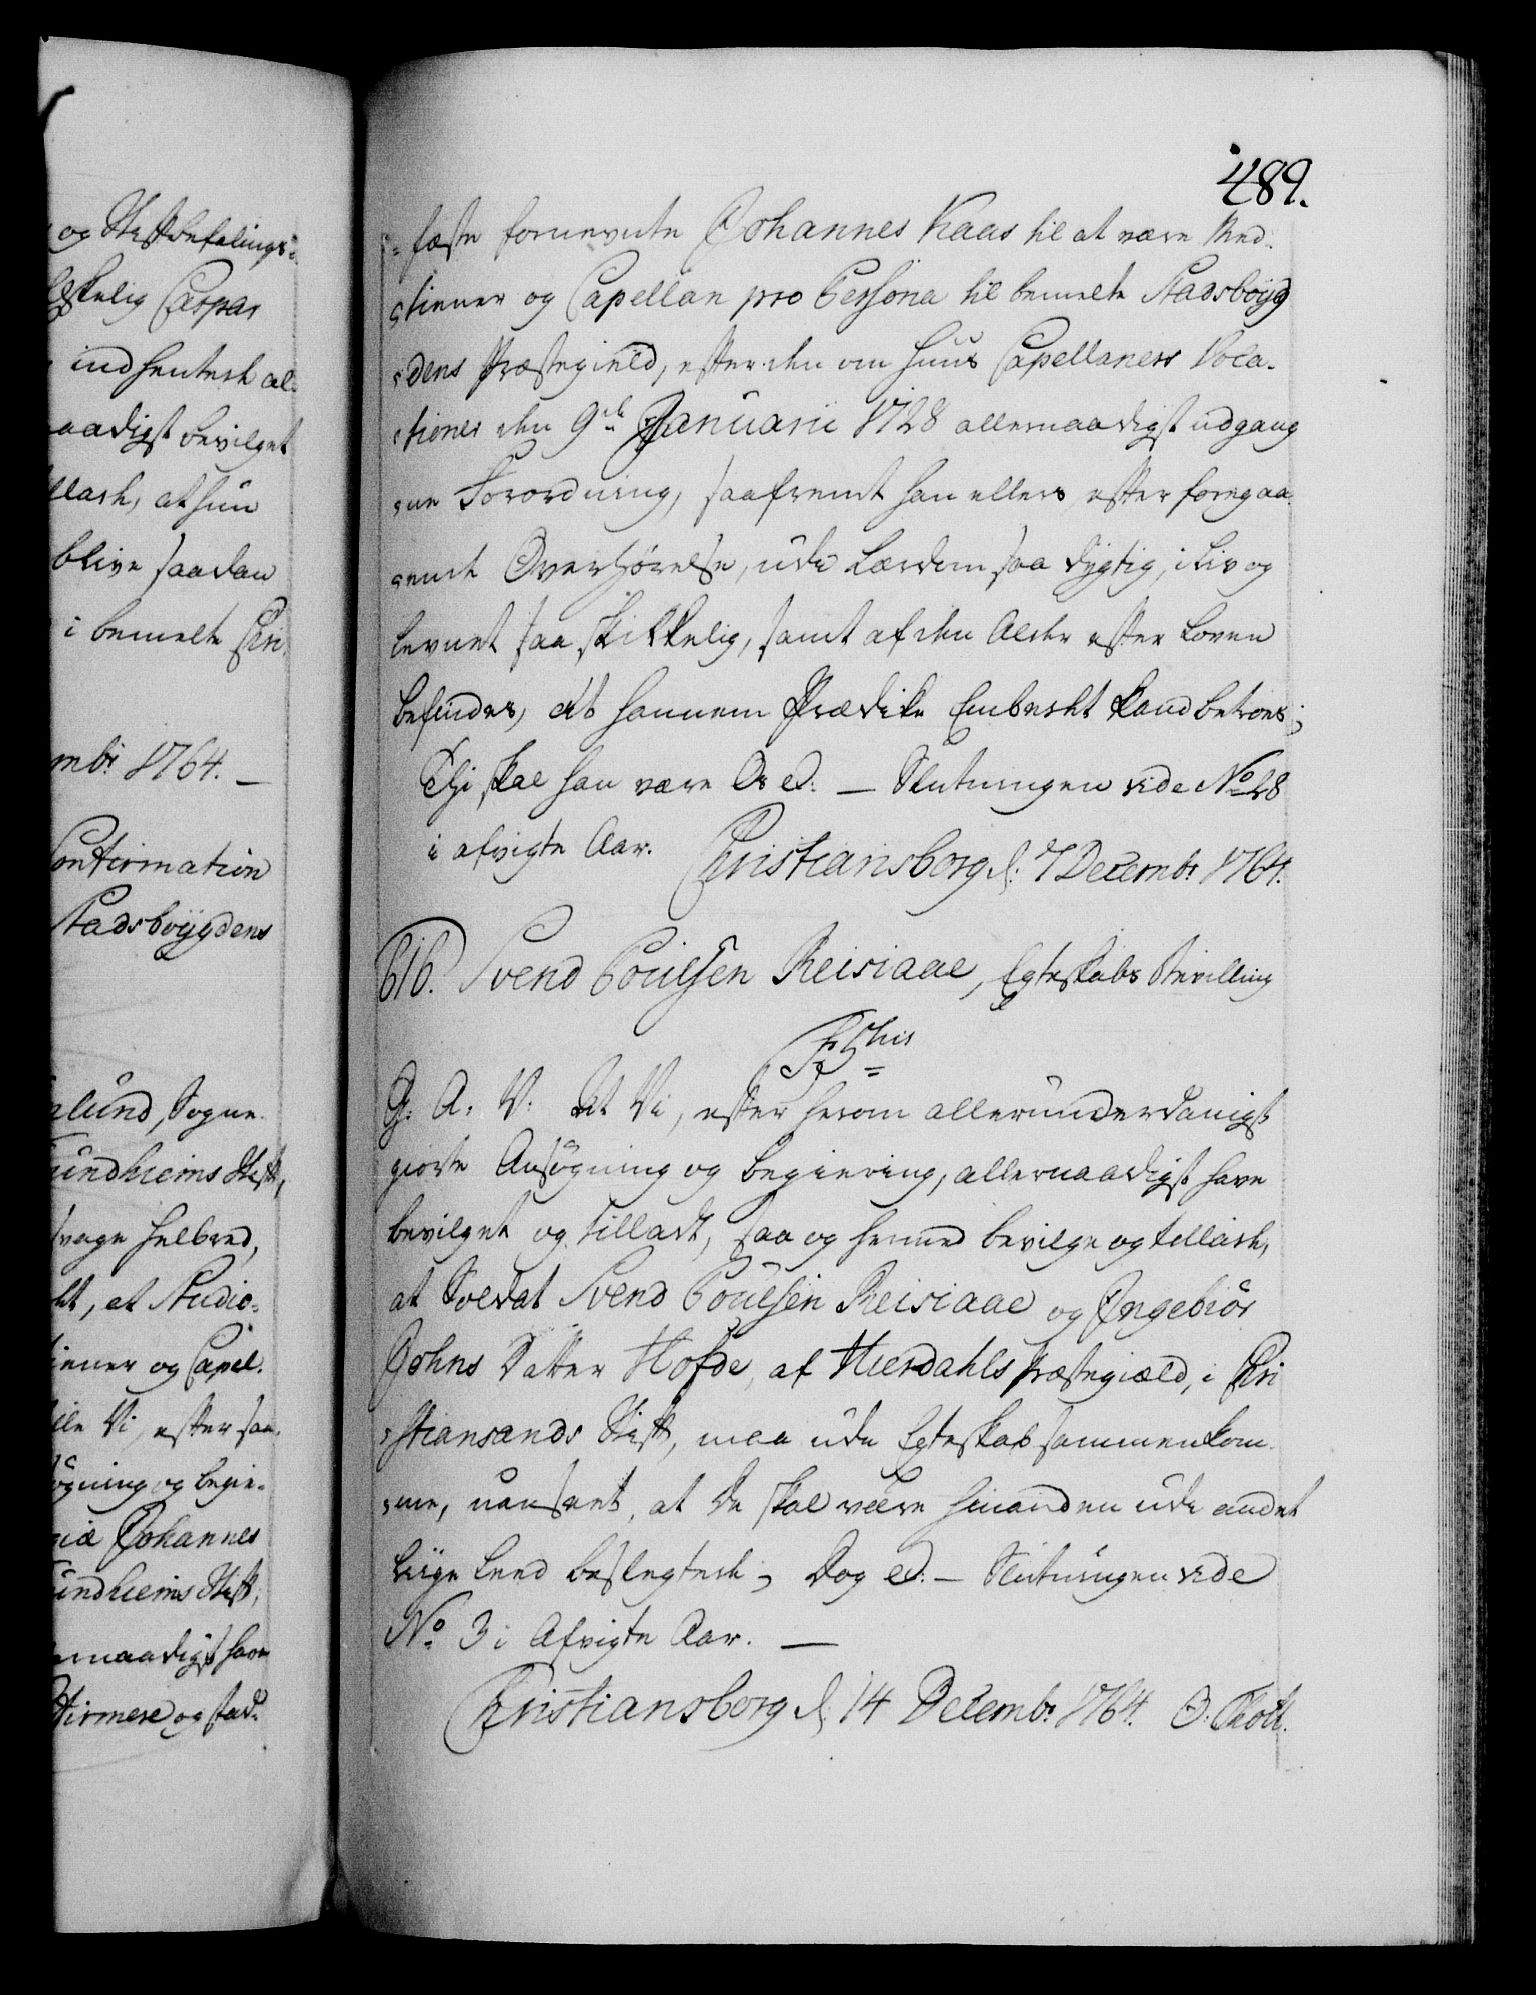 og Stiftbefalings-
Elskelig Caspar
indhentede al-
naadigst bevilget
at hun
blive saadan
i bemelte Chri-
mbr 1764. —
Confirmation
Stadsboygdens
lund, Sogne-
undhiems Stift,
svage Helbred,
at Studio-
iener og Capel-
Vi, efter saa-
øgning og begie-
giæ Johannes
undhiems Stift,
naadigst have
firmere og stad-
489.
-fæste fornevnte Johannes Kaas til at være Med-
-tiener og Capellan pro Persona til bemelte Stadsboyg
-dens Præstegield, efter den om Huus Capellaners Voca-
-tioner den 9de Januarii 1728 allernaadigst udgang
-ne Forordning, saafremt han ellers efter foregaa-
-ende Overhørelse, udi Lærdom saa dygtig, i Liv og
Levnet saa skikkelig, samt af den Alder efter Loven
befindes, at hannem Prædike Embedet kand betroes;
Thi skal han være Os ec: — Slutningen vide No 28
i afvigte Aar. Christiansborg d: 7 Decembr 1764.
616. Svend Poulsen Reisiaae, Egteskabs Bevilling
G: A: V: At Vi, efter herom allerunderdanigst
giorte Ansøgning og Begiering, allernaadigst have
bevilget og tilladt, saa og hermed bevilge og tillade,
at Soldat Svend Poulsen Reisiaae og Ingebiør
Johns Datter Hofde, af Hierdahls Præstegiæld, i Chri
-stiansands Stift, maa udi Egteskab sammenkom-
-me, uanseet, at de skal være hinanden udi andet
Liige Leed beslegtede; Dog ec. — Slutningen vide
No 3 i Afvigte Aar. —
Christiansborg d: 14 Decembr 1764. O: Thott.